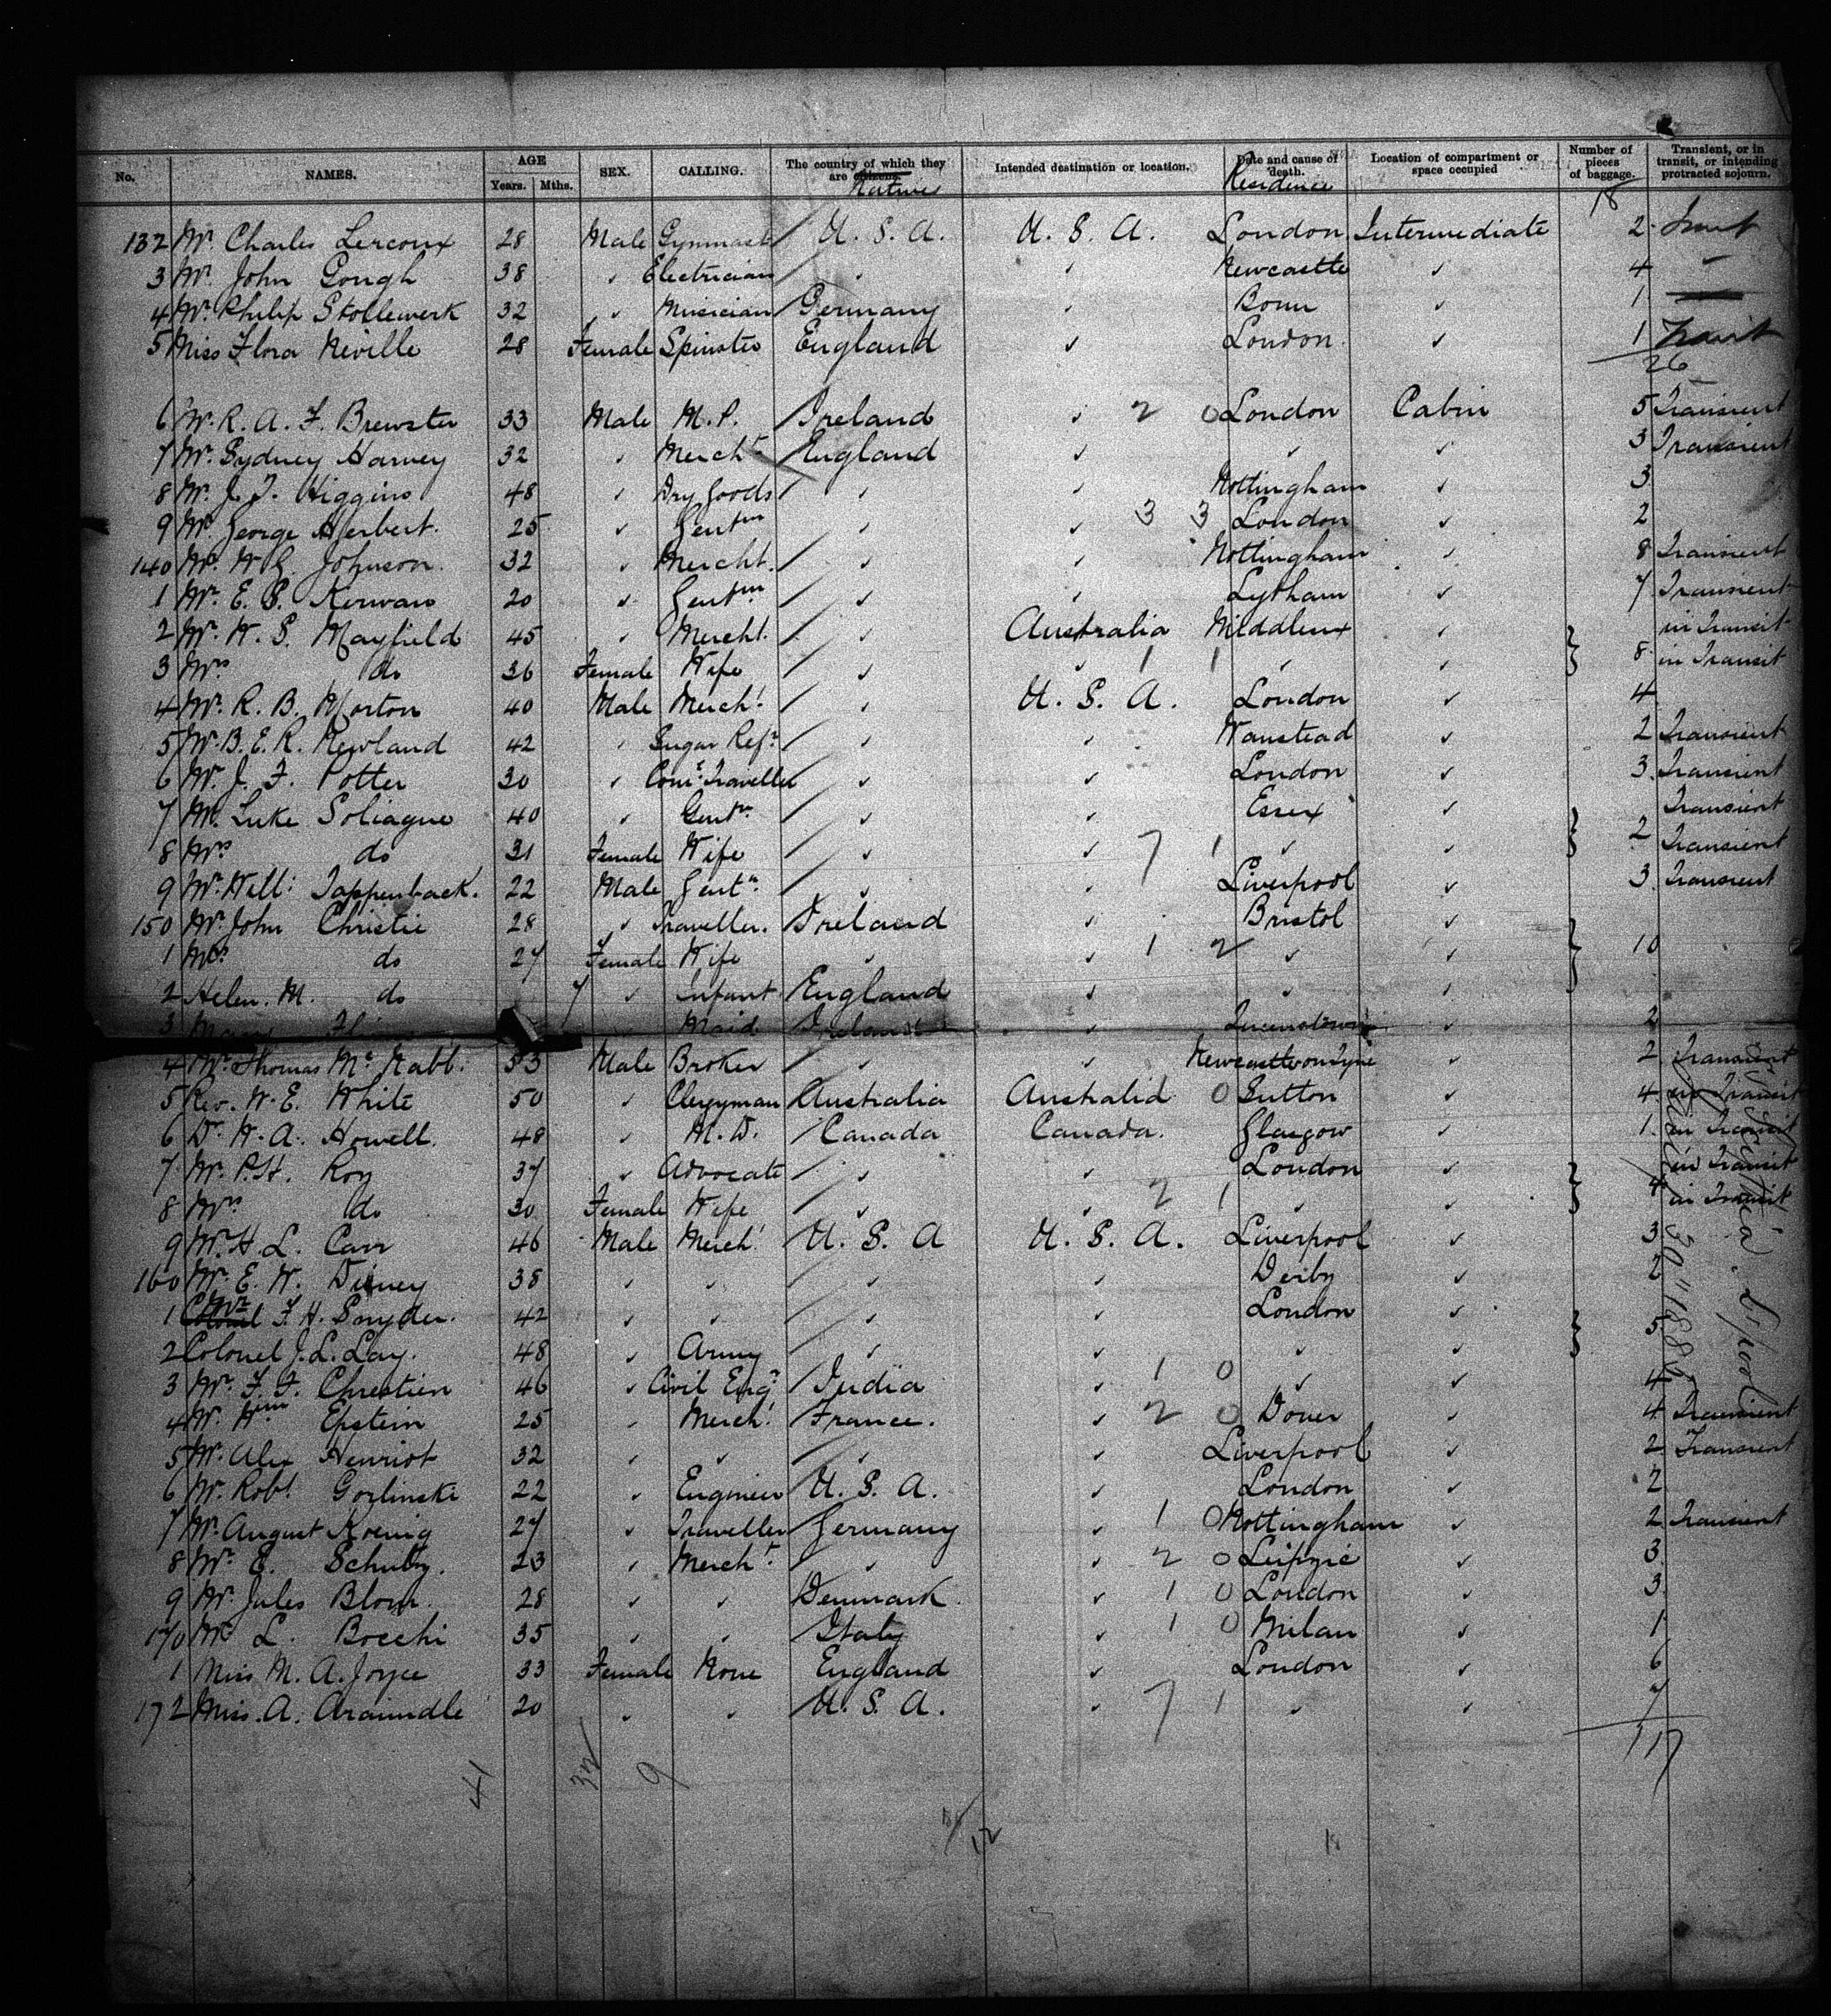 No. NAMES. AGE Years. Mths. SEX. CALLING. The country of which they are citizens. Natives Intended destination or location. Date and cause of death. Residence Location of compartment or space occupied Number of pieces of baggage. Transient, or in transit, or intending protracted sojourn.
18
132 Mr. Charles Leroux 28 Male Gymnast U. S. A. U. S. A. London Intermediate 2
3 Mr. John Gough 38 ✓ Electrician ✓ ✓ Newcastle ✓ 4
4 Mr. Philip Stollewerk 32 ✓ Musician Germany ✓ Bonn ✓ 1
5 Miss Flora Neville 28 Female Spinster England ✓ London ✓ 1
26
6 Mr. R. A. F. Brewster 33 Male M. P. Ireland ✓ 2 0 London Cabin 5 Transient
7 Mr. Sydney Harvey 32 ✓ Mercht England ✓ ✓ ✓ 3 Transient
8 Mr. J. T. Higgins 48 ✓ Dry Goods ✓ ✓ Nottingham ✓ 3
9 Mr. George Herbert. 25 ✓ Gentm ✓ ✓ 3 3 London ✓ 2
140 Mr. W. G. Johnson. 32 ✓ Mercht. ✓ ✓ Nottingham ✓ 8 Transient
1 Mr. E. P. Kerwan 20 ✓ Gentm ✓ ✓ Lytham ✓ 7 Transient
2 Mr. W. S. Mayfield 45 ✓ Mercht. ✓ Australia Middlesex ✓ in Transit
3 Mrs do 36 Female Wife ✓ ✓ 1 1 ✓ ✓ 8 in Transit
4 Mr. R. B. Morton 40 Male Mercht ✓ U. S. A. London ✓ 4
5 Mr. B. E. R. Newland 42 ✓ Sugar Refr ✓ ✓ Wanstead ✓ 2 Transient
6 Mr. J. F. Potter 30 ✓ Coml Traveller ✓ ✓ London ✓ 3 Transient
7 Mr. Luke Soliague 40 ✓ Gentn ✓ ✓ Essex ✓ Transient
8 Mrs do 31 Female Wife ✓ ✓ 7 1 ✓ ✓ 2 Transient
9 Mr. Will: Tappenback. 22 Male Gentn ✓ ✓ Liverpool ✓ 3 Transient
150 Mr. John Christie 28 ✓ Traveller. Ireland ✓ Bristol ✓
1 Mrs do 27 Female Wife ✓ ✓ 1 2 ✓ ✓ 10
2 Helen. M. do 7 ✓ Infant England ✓ ✓ ✓
3 Mary ✓ Maid Ireland ✓ Queenstown ✓ 2
4 Mr. Thomas Mc Nabb. 53 Male Broker ✓ ✓ Newcastle on Tyne ✓ 2 Transient
5 Rev. W. E. White 50 ✓ Clergyman Australia Australia 0 Sutton ✓ 4 in Transit
6 Dr. W. A. Howell. 48 ✓ M. D. Canada Canada. Glasgow ✓ 1 in Transit
7 Mr. P. H. Roy 37 ✓ Advocate ✓ ✓ London ✓ in Transit
8 Mrs do 30 Female Wife ✓ ✓ 2 1 ✓ ✓ 4 in Transit
9 Mr. H. L. Carr 46 Male Mercht U. S. A U. S. A. Liverpool ✓ 3
160 Mr. E. W. Disney 38 ✓ ✓ ✓ ✓ Derby ✓ 2
1 Colonel Mr F. H. Snyder. 42 ✓ ✓ ✓ ✓ London ✓
2 Colonel J. L. Lay. 48 ✓ Army ✓ ✓ ✓ ✓ 5
3 Mr. F. F. Chrestien 46 ✓ Civil Engr India ✓ 1 0 ✓ ✓ 4
4 Mr. Wm Epstein 25 ✓ Mercht France. ✓ 2 0 Dover ✓ 4 Transient
5 Mr. Alex Henriot 32 ✓ ✓ ✓ ✓ Liverpool ✓ 2 Transient
6 Mr. Robt Gorlinski 22 ✓ Engineer U. S. A. ✓ London ✓ 2
7 Mr. August Koenig 27 ✓ Traveller Germany ✓ 1 0 Nottingham ✓ 2 Transient
8 Mr. E. Schultz. 23 ✓ Mercht ✓ ✓ 2 0 Leipzic ✓ 3
9 Mr. Jules Blom. 28 ✓ ✓ Denmark ✓ 1 0 London ✓ 3
170 Mr L. Bocchi 35 ✓ ✓ Italy ✓ 1 0 Milan ✓ 1
1 Miss M. A. Joyce 33 Female None England ✓ London ✓ 6
172 Miss. A. Araundle 20 ✓ ✓ U. S. A. ✓ 7 1 ✓ ✓ 7
117
41 32 9
12